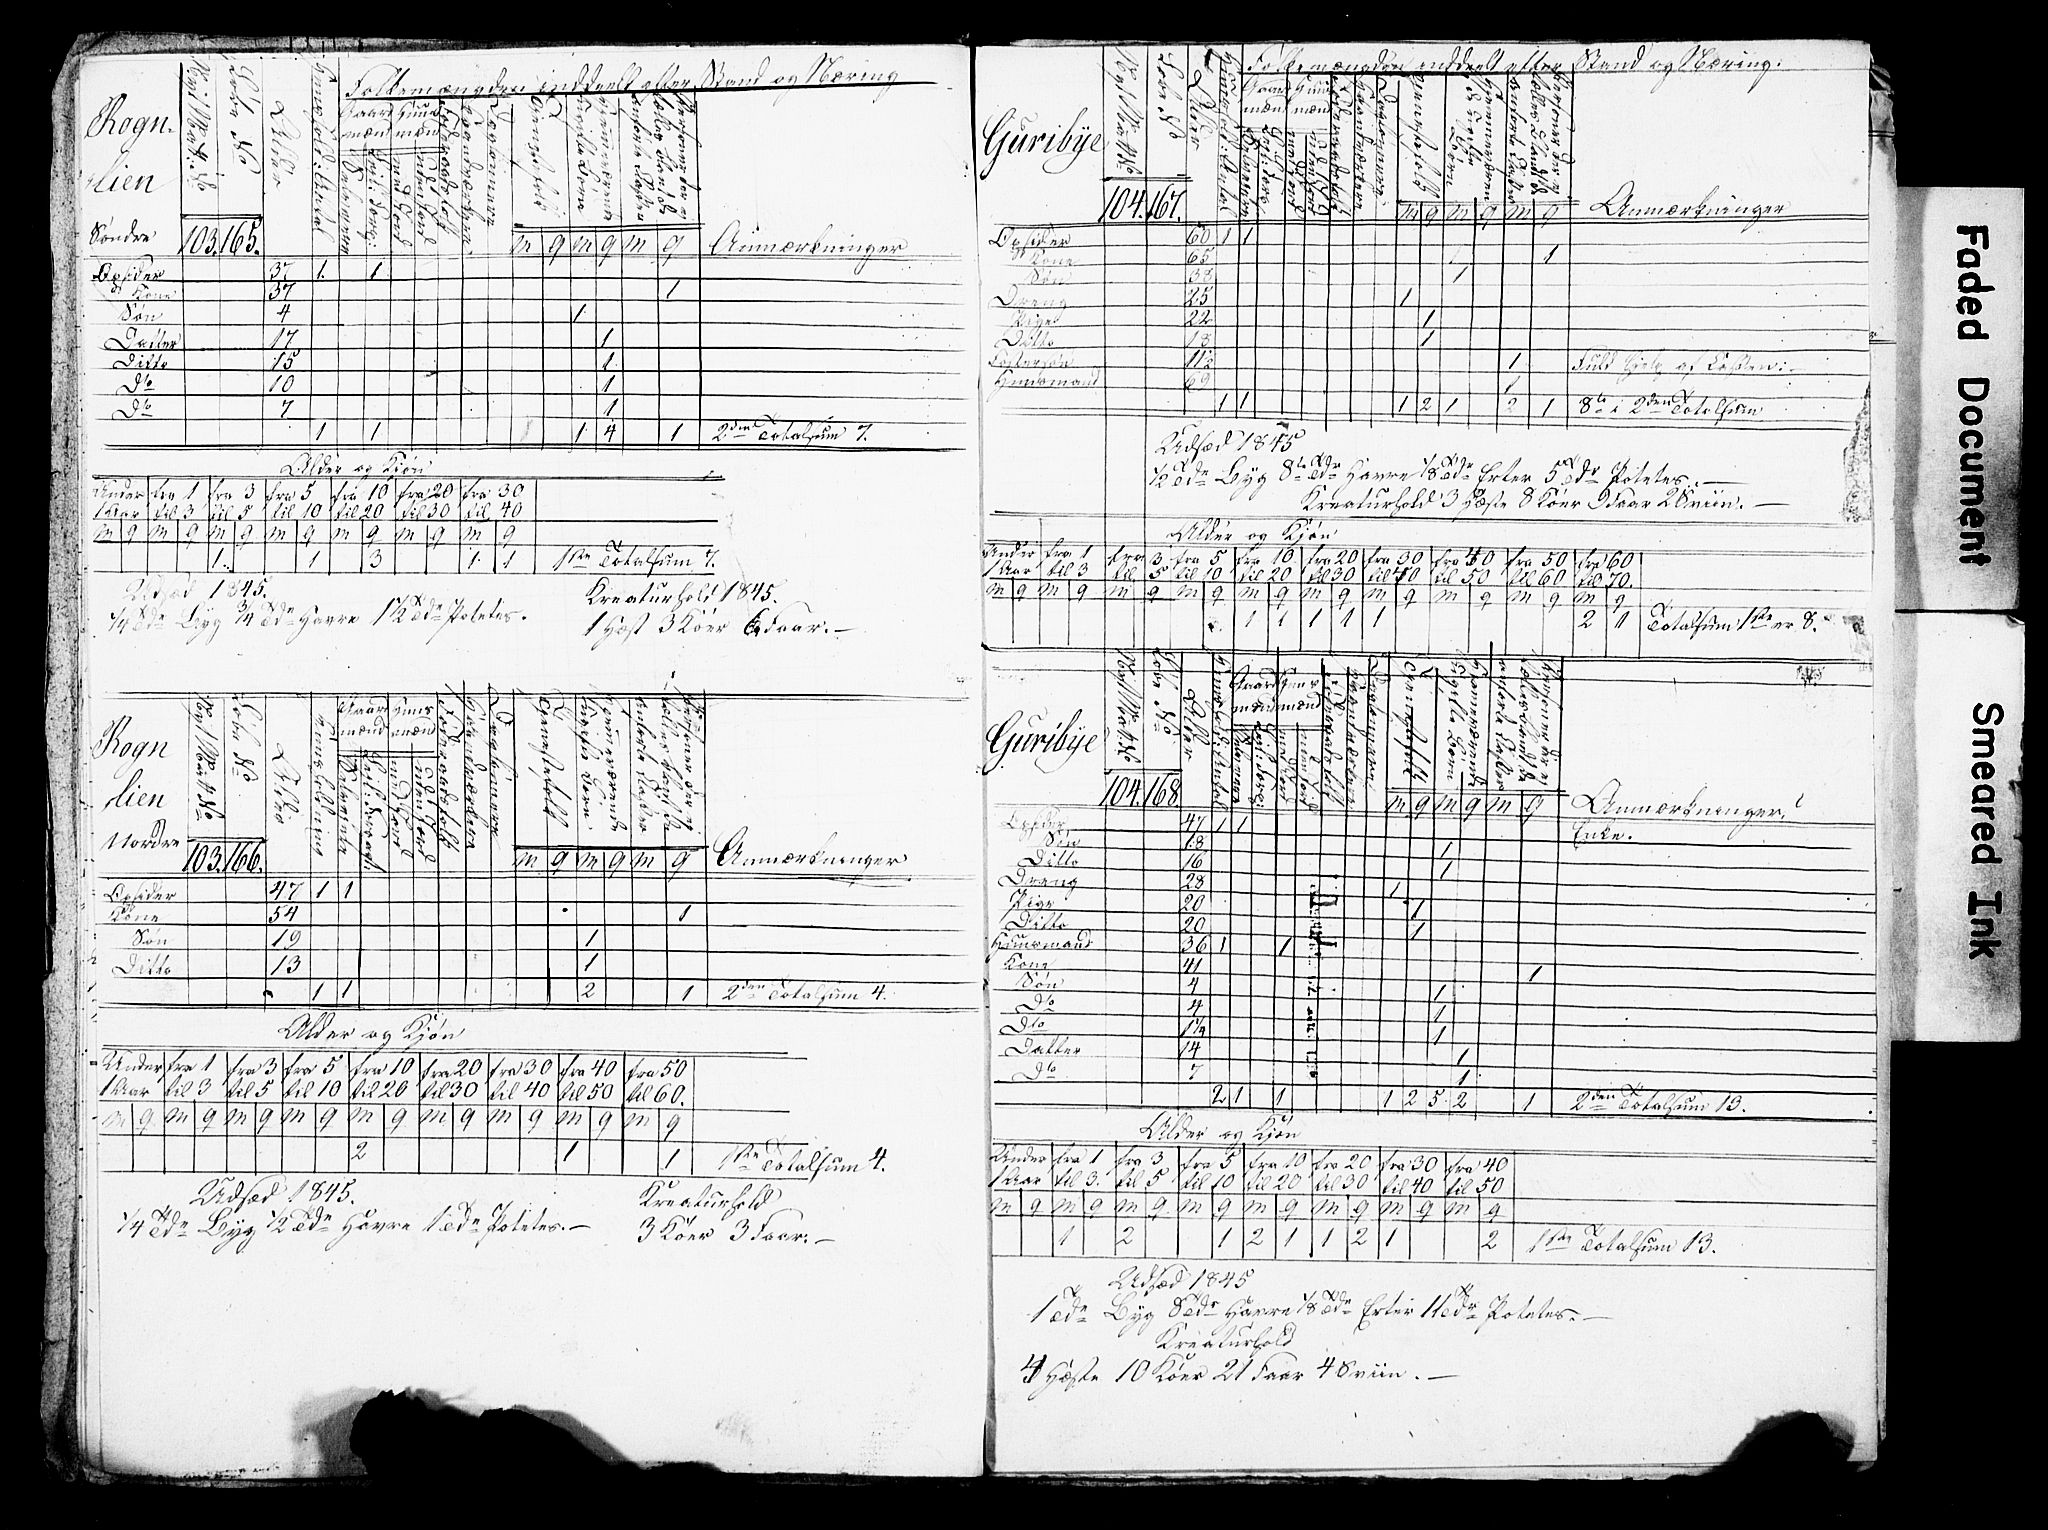 Rogn-
lien
Søndre
Nye Mat: No
Løbe No
103. 165.
Alder
Huushold: Antal
Folkemængden inddeelt efter Stand og Næring
Gaard mænd
Huus mænd
Selveiere
med Jord
uden Jord
Føderaadsfolk
Haandværkere
Dagleiere
Tjenestefolk
m g m g m g
Anmærkninger
Opsider 37 1. 1
Kone 37 1
Søn 4 1
Datter 17 1
Ditto 15 1.
Do 10 1
Do 7 1
1 1 1 4 1 2den Totalsum 7.
Alder og Kjøn
Under fra 1 fra 3 fra 5 fra 10 fra 20 fra 30
1 Aar til 3 til 5 til 10 til 20 til 30 til 40
m g m g m g m g m g m g m g
1. 1 3 1. 1 1ste Totalsum 7.
Udsæd 1845. Kreaturhold 1845.
1/4 Tde Byg 3/4 Tde Havre 1 1/2 Tde Potetes. 1 Hest 3 Køer 6 Faar. —
Rogn
lien
Nordre
103. 166.
Alder
Selveiere
med Jord
uden Jord
Føderaadsfolk
Haandværkere
Dagleiere
Tjenestefolk
m g m g m g
Anmærkninger
Opsider 47 1 1
Kone 54 1
Søn 19 1
Ditto 13 1
1 1 2 1 2den Totalsum 4.
Alder og Kjøn
Under fra 1 fra 3 fra 5 fra 10 fra 20 fra 30 fra 40 fra 50
1 Aar til 3 til 5 til 10 til 20 til 30 til 40 til 50 til 60.
m g m g m g m g m g m g m g m g m g
2 1 1 1ste Totalsum 4.
Udsæd 1845. Kreaturhold
1/4 Tde Byg 1/2 Tde Havre 1 Tde Potetes. — 3 Køer 3 Faar. —
Folkemængden inddeelt efter Stand og Næring:
Guribye
104. 167.
m g m g m g
Anmærkninger
Opsider 60 1 1
Kone 65 1
Søn 38 1
Dreng 25 1
Pige 22 1
Ditto 18 1
Fostersøn 11 1/2 1 Fuld Hjelp af Kassen:
Huusmand 69 1
1 1 1 2 1 2 1 8te i 2den Totalsum
Udsæd 1845
1/2 Tde Byg 8te Tdr Havre 1/8 Tde Erter 5 Tdr Potetes. —
Kreaturhold 3 Heste 8 Køer 9 Faar 2 Sviin. —
Alder og Kjøn
Under fra 1 fra 3 fra 5 fra 10 fra 20 fra 30 fra 40 fra 50 fra 60
1 Aar til 3 til 5 til 10 til 20 til 30 til 40 til 50 til 60 til 70.
m g m g m g m g m g m g m g m g m g m g
1 1 1 1 1 2 1 Totalsum 1ste er 8.
Guribye
104. 168.
m g m g m g
Anmærkninger.
Opsider 47 1 1 Enke.
Søn 18 1
Ditto 16 1
Dreng 28 1
Pige 20 1
Ditto 20 1
Huusmand 36 1 1
Kone 41 1
Søn 4 1
Do 4 1
Do 1 1/4 1
Datter 14 1
Do 7 1
2 1 1 1 2 5 2 1 2den Totalsum 13.
Alder og Kjøn
Under fra 1 fra 3 fra 5 fra 10 fra 20 fra 30 fra 40
1 Aar til 3. til 5 til 10 til 20 til 30 til 40 til 50
m g m g m g m g m g m g m g m g
1 2 1 2 1 1 2 1 2 1ste Totalsum 13.
Udsæd 1845
1 Tde Byg 8 Tdr Havre 1/8 Tde Erter 11 Tdr Potetes. —
Kreaturhold
4 Heste 10 Køer 21 Faar 4 Sviin. —
Faded Document
Smeared Ink